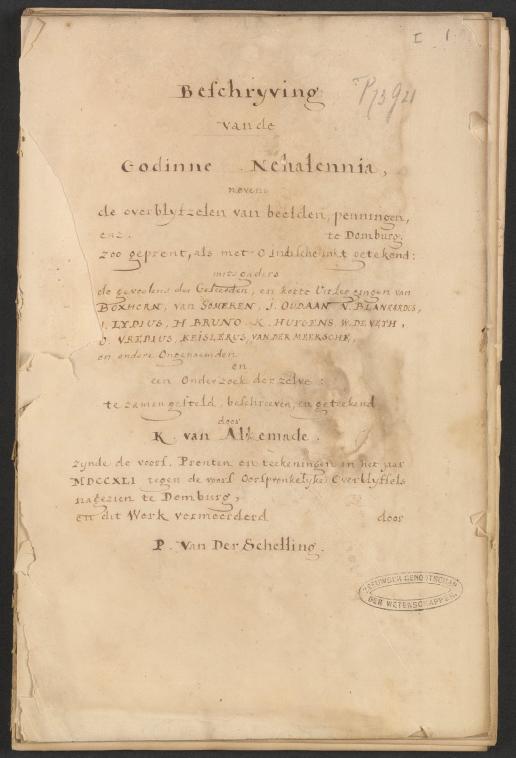 I 1.
Beschryving
van de
Godinne Nehalennia,
nevens
de overblyfzelen van beelden, penningen,
enz. te Domburg,
zoo geprent, als met O Indische inkt getekend:
mitsgaders
de gevoelens der Geleerden, en korte Uitleggingen van
BOXHORN, VAN SOMEREN, J. OUDAAN, N. BLANKARDUS,
J. LYDIUS, H. BRUNO, K. HUIGENS, W. DE VETH,
O. VREDIUS, KEISLERUS, VAN DER MEERSCHE,
en andere Ongenaemden
en
een Onderzoek der zelve:
te zamen gesteld, beschreeven, en geteekend
door
K. van Alkemade.
zynde de voors. Prenten en teekeningen in het jaar
MDCCXLI tegen de voors. Oorspronkelyke Overblyfsels
nagezien te Domburg,
en dit Werk vermeerderd door
P. Van Der Schelling.
ZEEUWSCH GENOOTSCHAP
DER WETENSCHAPPEN.